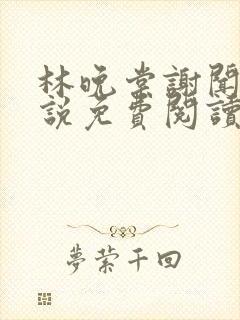 林晚棠謝聞
說免費閱讀
夢縈千回